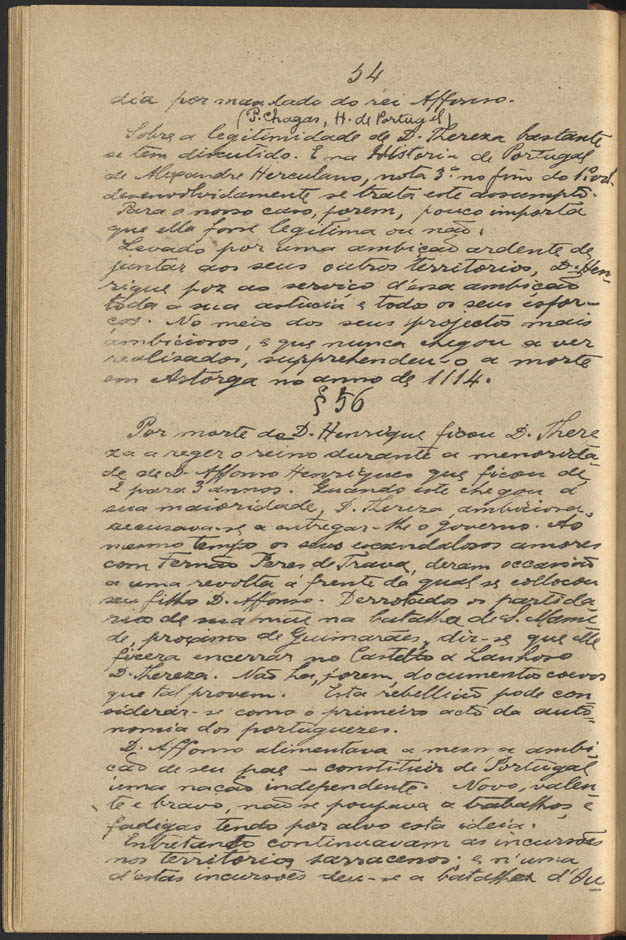 54
dia por mandado do rei Affonso.
(P. Chagas, H. de Portugal)
Sobre a legitimidade de D. Thereza bastante
se tem discutido. E na Historia de Portugal
de Alexandre Herculano, nota 3ª no fim do 1º vol.
desenvolvidamente se trata este assumpto.
Para o nosso caso, porem, pouco importa
que ella fosse legitima ou não.
Levado por uma ambição ardente de
juntar aos seus outros territorios, D. Hen-
rique poz ao serviço d'essa ambição
toda a sua astucia e todos os seus esfor-
ços. No meio dos seus projectos mais
ambiciosos, e que nunca chegou a ver
realisados, surprehendeu-o a morte
em Astorga no anno de 1114.
§ 56
Por morte de D. Henrique ficou D. There
za a reger o reino durante a menorida-
de de D. Affonso Henriques que ficou de
2 para 3 annos. Quando este chegou á
sua maioridade, D. Thereza ambiciosa,
recusava-se a entregar-lhe o governo. Ao
mesmo tempo os seus escandalosos amores
com Fernão Peres de Trava, deram occasião
a uma revolta á frente da qual se collocou
seu filho D. Affonso. Derrotados os partida-
rios de sua mãe na batalha de S. Mame-
de, proximo de Guimarães, diz-se que elle
fizera encerrar no Castello de Lanhoso
D. Thereza. Não ha, porem, documentos coevos
que tal provem. Esta rebellião pode con-
siderar-se como o primeiro acto da auto-
nomia dos portuguezes.
D. Affonso alimentava a mesma ambi-
ção de seu pae – constituir de Portugal
uma nação independente. Novo, valen-
te e bravo, não se poupava a trabalhos e
fadigas tendo por alvo esta ideia.
Entretanto continuavam as incursões
nos territorios sarracenos; e n'uma
d'estas incursões deu-se a batalha d'Ou-